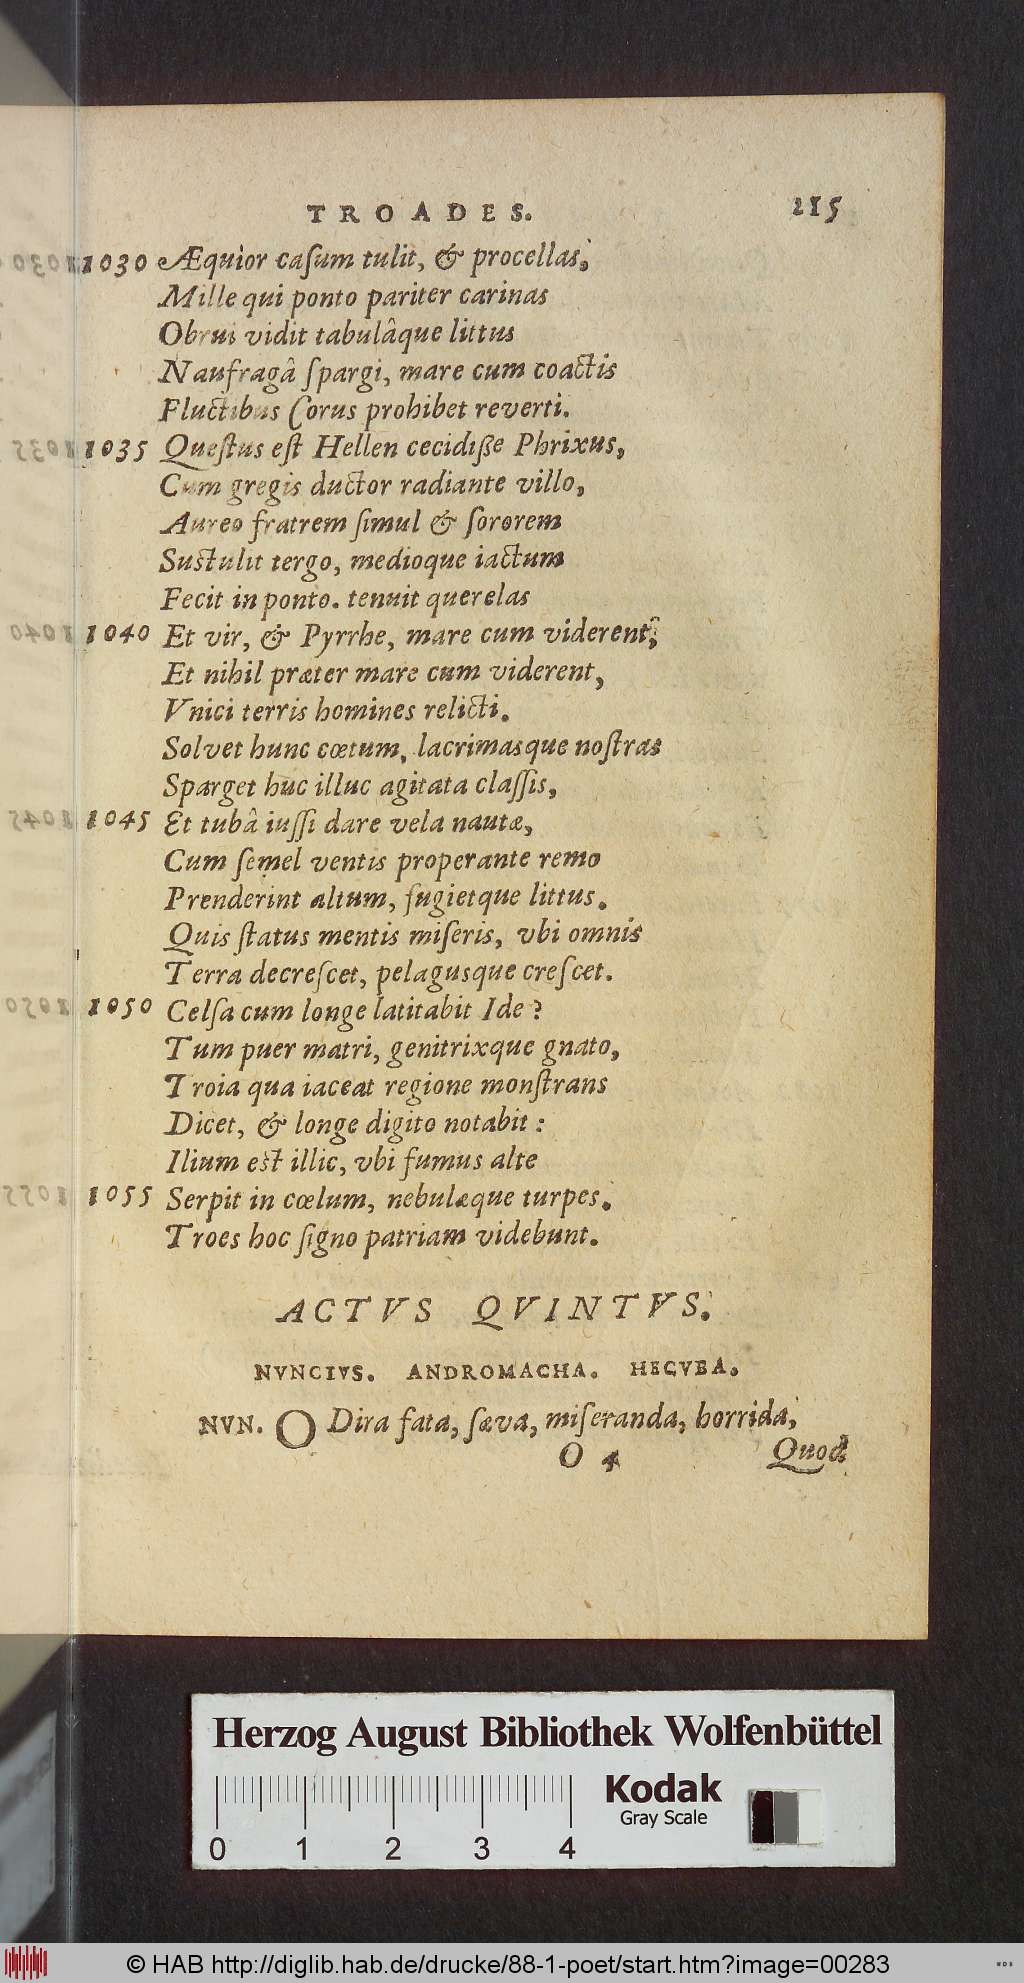 TROADES. 215
1030 Æquior caſum tulit, & procellas,
Mille qui ponto pariter carinas
Obrui vidit tabulâque littus
Naufragâ ſpargi, mare cum coactis
Fluctibus Corus prohibet reverti.
1035 Queſtus eſt Hellen cecidiſſe Phrixus,
Cum gregis ductor radiante villo,
Aureo fratrem ſimul & ſororem
Suſtulit tergo, medioque iactum
Fecit in ponto. tenuit querelas
1040 Et vir, & Pyrrhe, mare cum viderent,
Et nihil præter mare cum viderent,
Vnici terris homines relicti.
Solvet hunc cœtum, lacrimasque noſtras
Sparget huc illuc agitata claſſis,
1045 Et tubâ iuſſi dare vela nautæ,
Cum ſemel ventis properante remo
Prenderint altum, fugietque littus.
Quis ſtatus mentis miſeris, vbi omnis
Terra decreſcet, pelagusque creſcet.
1050 Celſa cum longe latitabit Ide?
Tum puer matri, genitrixque gnato,
Troia qua iaceat regione monſtrans
Dicet, & longe digito notabit:
Ilium eſt illic, vbi fumus alte
1055 Serpit in cœlum, nebulæque turpes.
Troes hoc ſigno patriam videbunt.
ACTVS QVINTVS.
NVNCIVS. ANDROMACHA. HECVBA.
NVN. O Dira fata, ſæva, miſeranda, horrida,
O 4 Quod
Herzog August Bibliothek Wolfenbüttel
Kodak
Gray Scale
0 1 2 3 4
© HAB http://diglib.hab.de/drucke/88-1-poet/start.htm?image=00283